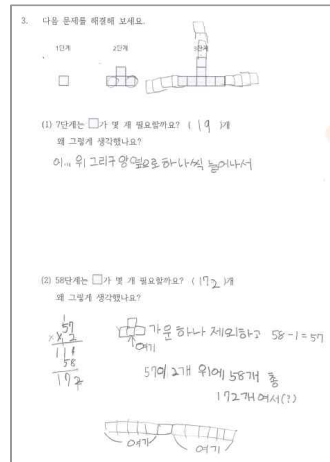 3. 다음 문제를 해결해 보세요.
1단계 2단계 3단계
(1) 7단계는 □가 몇 개 필요할까요? ( 19 )개
왜 그렇게 생각했나요?
위 그리구 양옆으로 하나씩 늘어나서
(2) 58단계는 □가 몇 개 필요할까요? ( 172 )개
왜 그렇게 생각했나요?
57
× 2
114
58
172
가운 하나 제외하고 58-1=57
여기
57이 2개 위에 58개 총
172개여서(?)
여기 여기